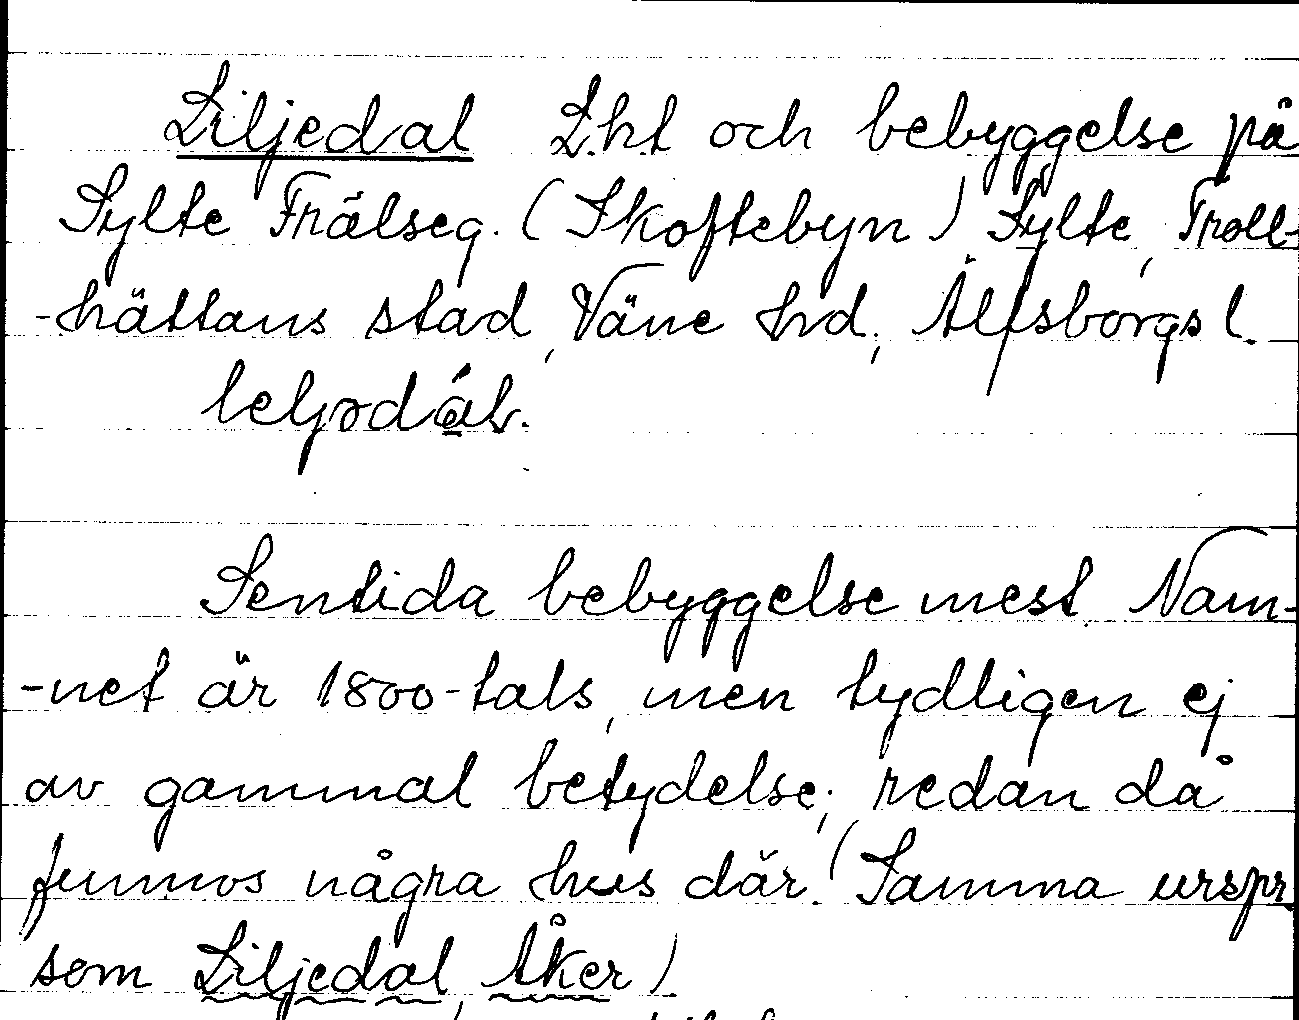 Liljedal L.h.t och bebyggelse på
Sylte Frälseg. (Skoftebyn) Sylte, Troll-
-hättans stad, Väne hd, Älfsborgs l.
Sentida bebyggelse mest. Nam-
-net är 1800-tals, men tydligen ej
av gammal betydelse; redan då
funnos några hus där. (Samma urspr.
som Liljedal, Åker)